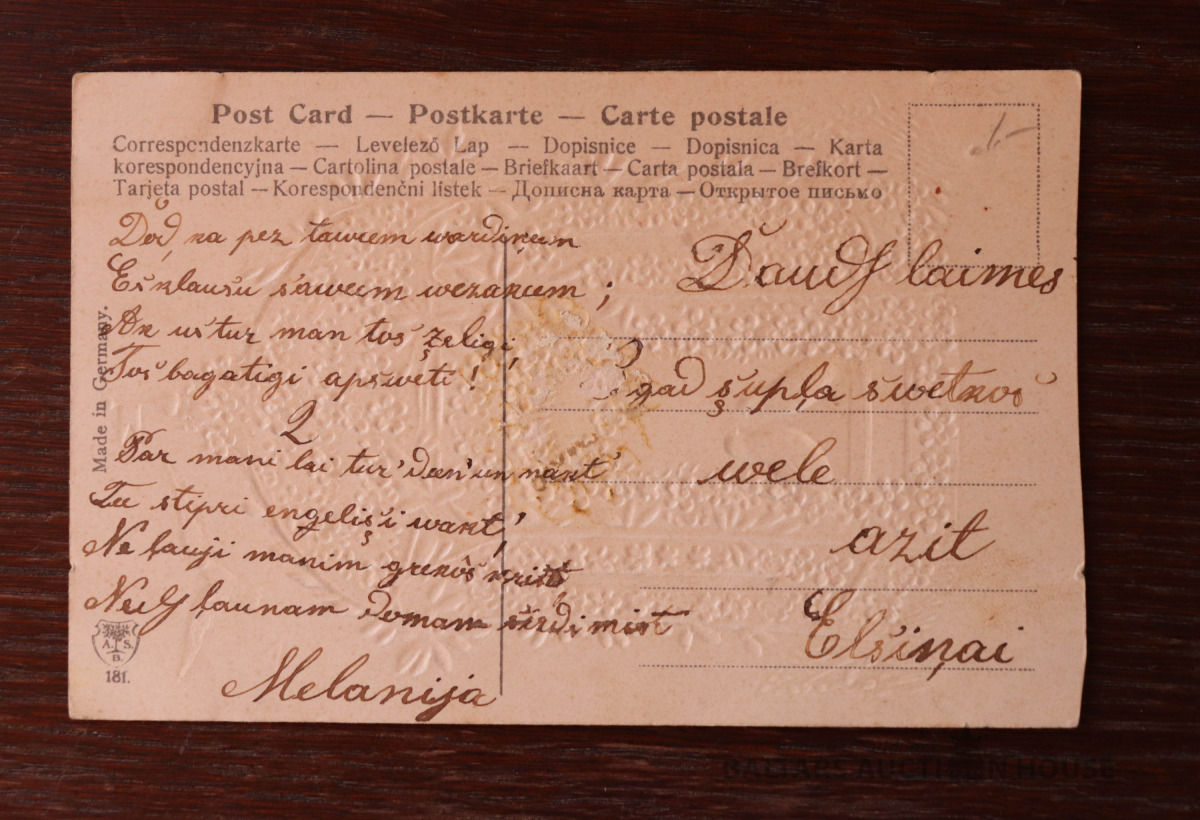 Post Card — Postkarte — Carte postale
Correspondenzkarte — Levelező Lap — Dopisnice — Dopisnica — Karta
korespondencyjna — Cartolina postale — Briefkaart — Carta postala — Brefkort —
Tarjeta postal — Korespondenčni listek — Дописна карта — Открытое письмо
Made in Germany.
Dod, ka pez tawem wardinem
Es klausu sawem wezakem ;
An us tur man tos želigi,
Tos bagatigi apsweti !
2
Par mani lai tur' deen' un nakt'
Tee stipri engeliši wakt,
Ne ļauji manim grekôs krist
Nedſ ļaunam domam sirdi mist
Melanija
Daudſ laimes
gad šupļa swetkos
wele
azit
Elsiņai
A. S.
B.
181.
BALTARS AUCTION HOUSE